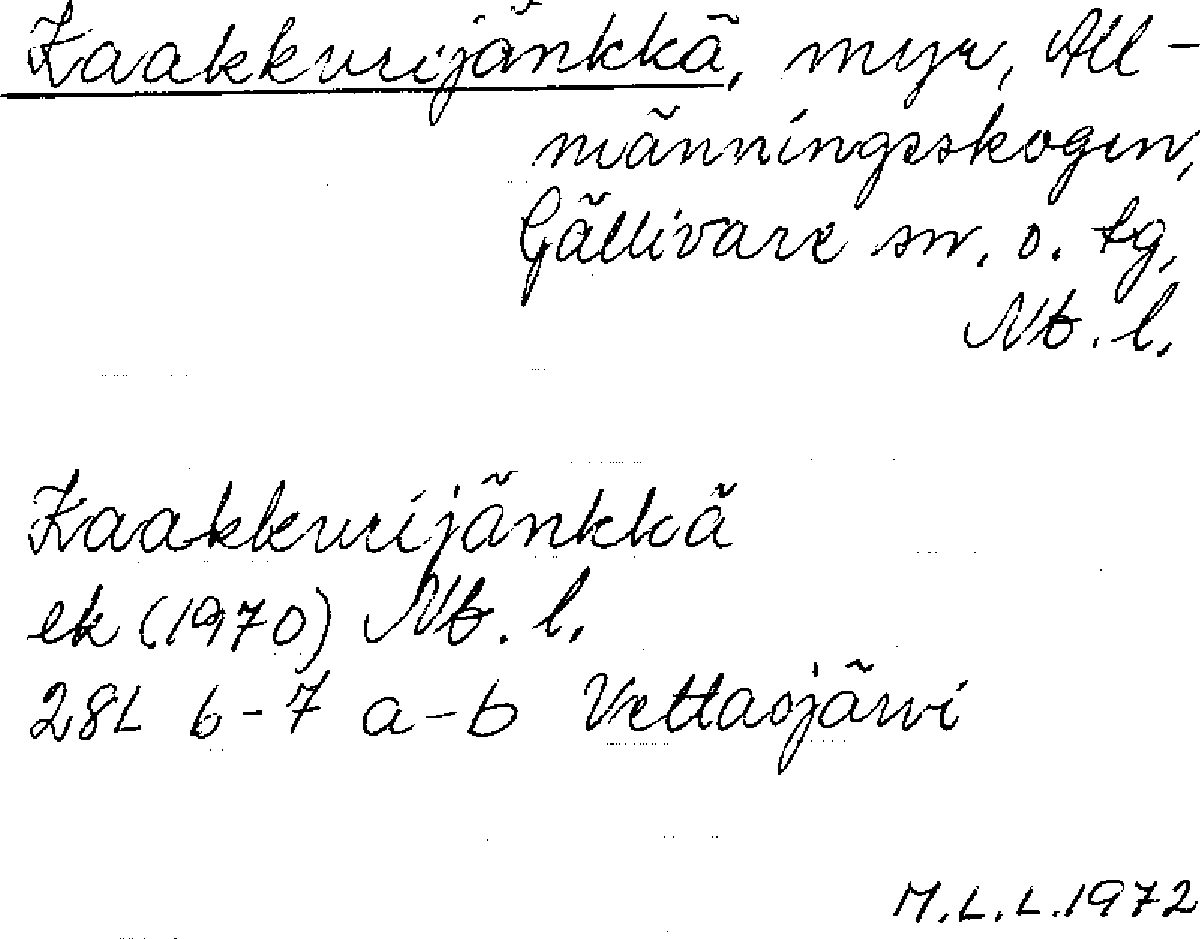 Kaakkurijänkkä, myr, All-
männingsskogen,
Gällivare sn. o. tg,
Nb. l.
Kaakkurijänkkä
ek (1970) Nb. l.
28L 6-7 a-b Vettasjärvi
M.L.L.1972